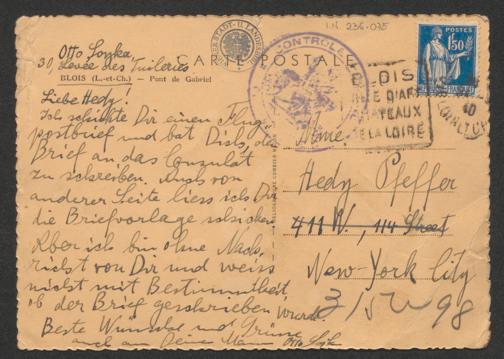 I.N. 236.075
Otto Soyka,
30, Levée des Tuileries
BLOIS (L.-et-Ch.) — Pont de Gabriel
CARTE POSTALE
Liebe Hedy!
Ich schickte Dir einen Flug-
postbrief und bat Dich, den
Brief an das Consulat
zu schreiben. Auch von
anderer Seite liess ich Dir
die Briefvorlage schicken
Aber ich bin ohne Nach-
richt von Dir und weiss
nicht mit Bestimmtheit,
ob der Brief geschrieben wurde
Beste Wünsche und Grüsse
auch an Deinen Mann Otto Soyka
CONTROLE
POSTES
1F50
BLOIS
VILLE D'ART
CHATEAUX
DE LA LOIRE
Mme.
Hedy Pfeffer
411 W., 114 Street
New-York City
98